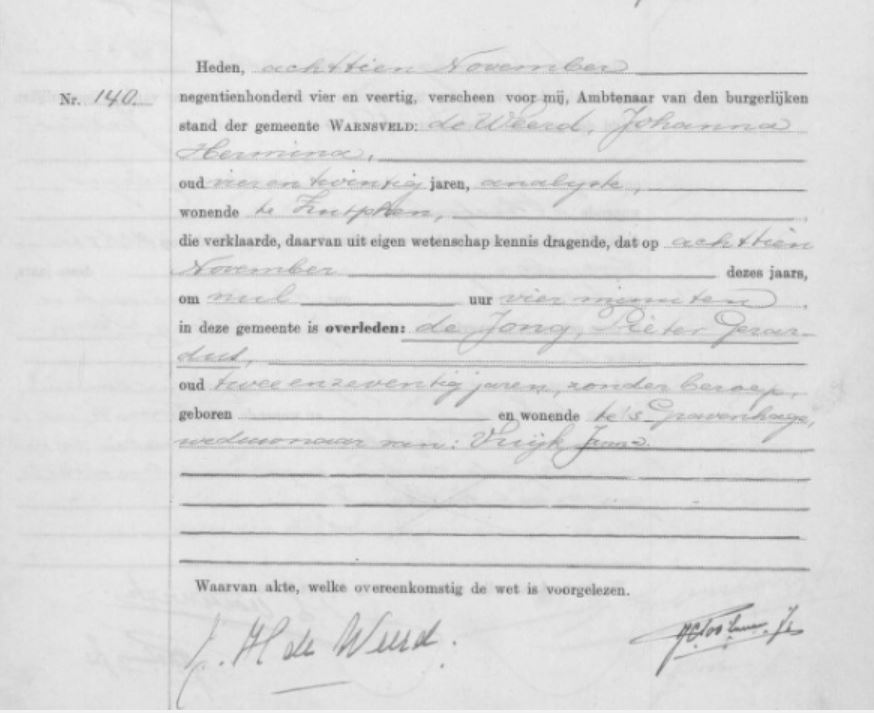 Heden, achttien November
Nr. 140. negentienhonderd vier en veertig, verscheen voor mij, Ambtenaar van den burgerlijken
stand der gemeente WARNSVELD: de Weerd, Johanna
Hermina,
oud vier en twintig jaren, analyste,
wonende te Zutphen,
die verklaarde, daarvan uit eigen wetenschap kennis dragende, dat op achttien
November dezes jaars,
om nul uur vier minuten,
in deze gemeente is overleden: de Jong, Pieter Gerar-
dus,
oud twee en zeventig jaren, zonder beroep,
geboren en wonende te 's Gravenhage,
weduwnaar van: Vuijk
Waarvan akte, welke overeenkomstig de wet is voorgelezen.
J. H de Weerd.